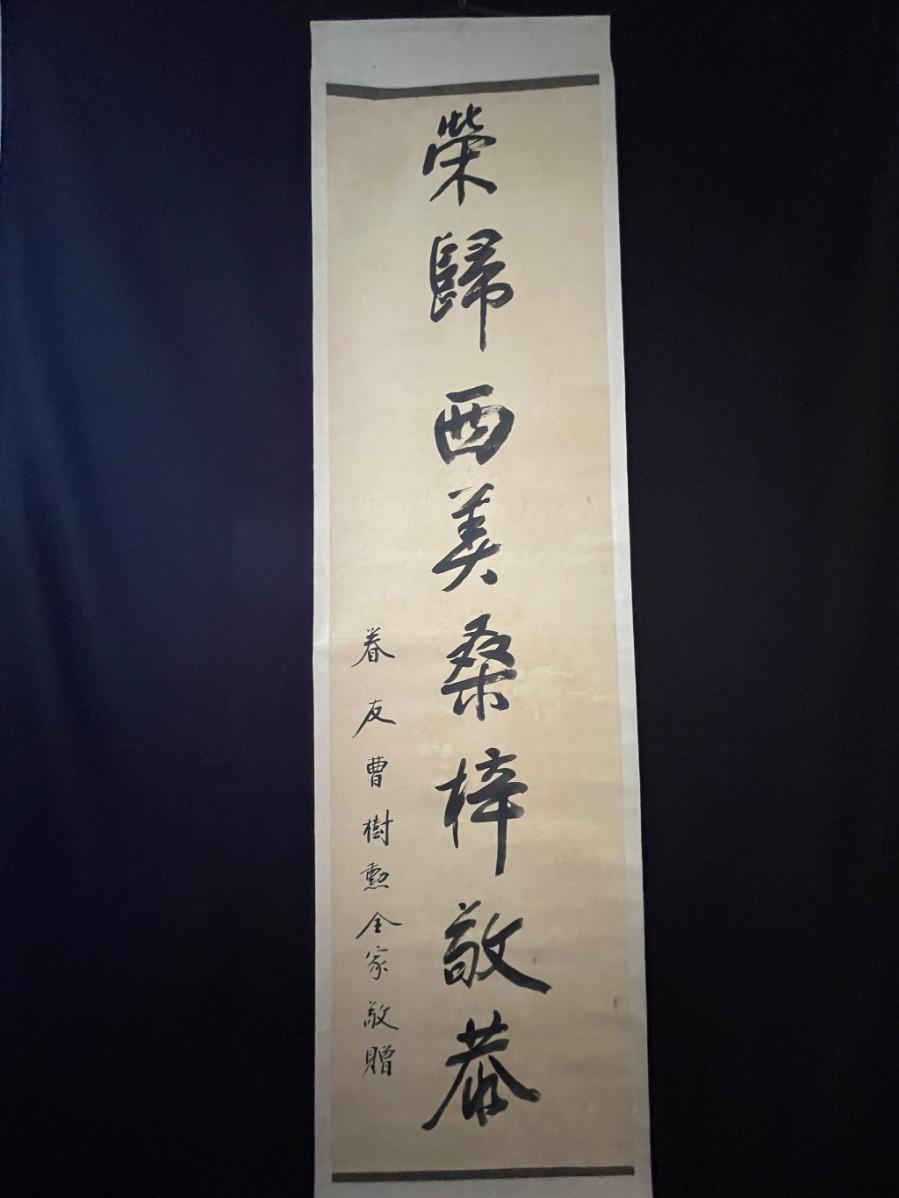 榮歸西美桑梓敬恭
眷友曹樹勲全家敬贈